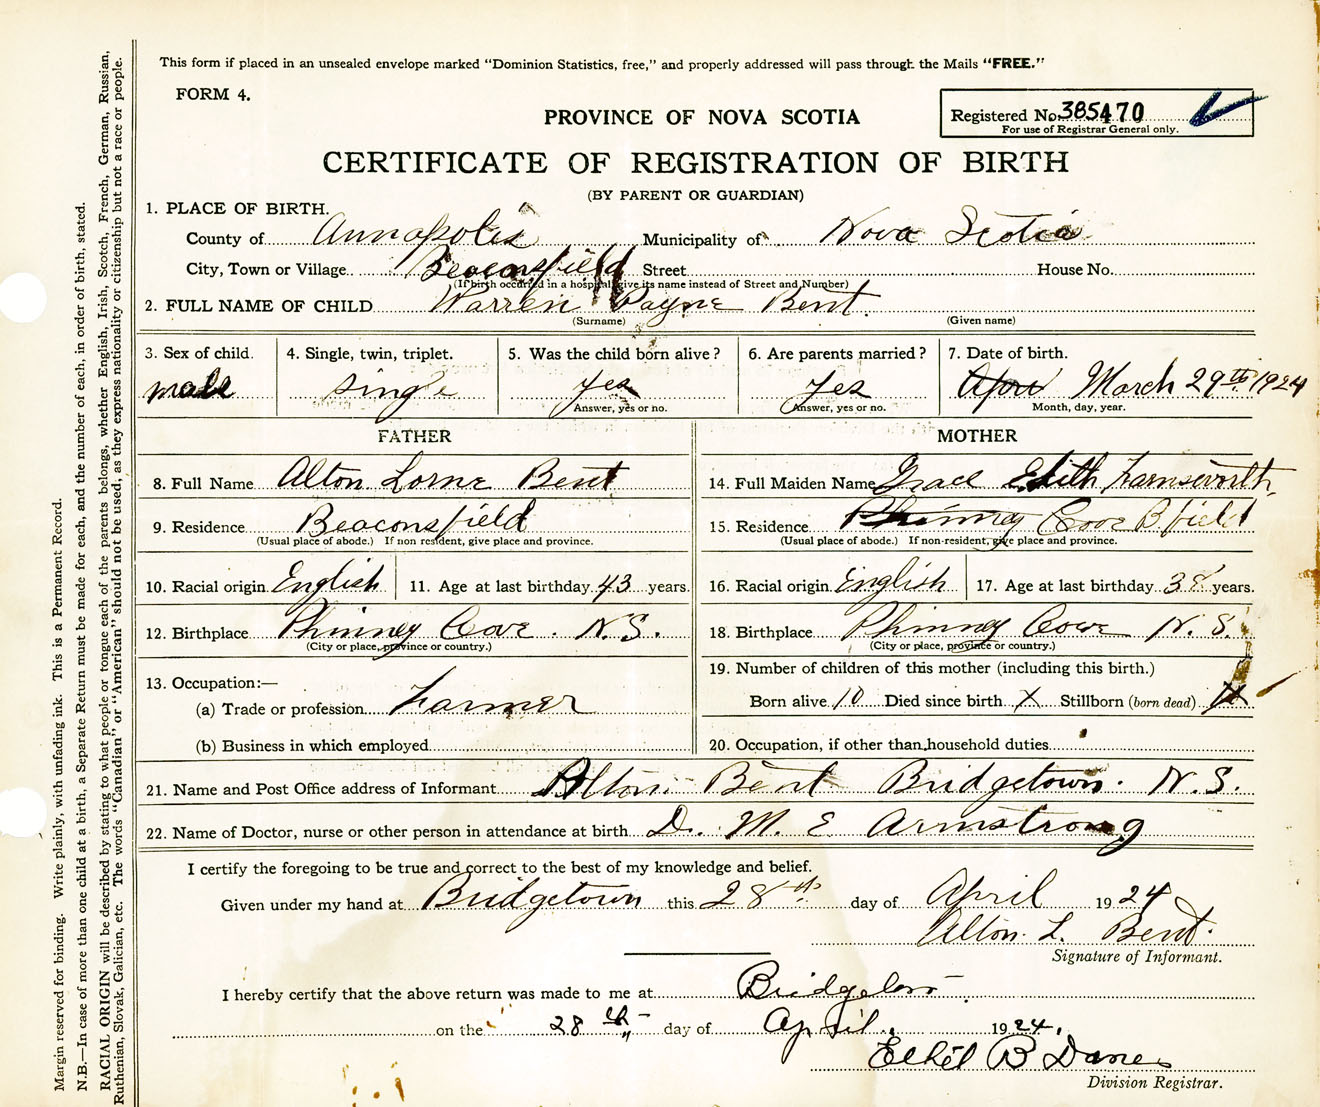 This form if placed in an unsealed envelope marked "Dominion Statistics, free," and properly addressed will pass through the Mails "FREE."
FORM 4.
PROVINCE OF NOVA SCOTIA
Registered No. 385470
For use of Registrar General only.
CERTIFICATE OF REGISTRATION OF BIRTH
(BY PARENT OR GUARDIAN)
1. PLACE OF BIRTH.
County of Annapolis Municipality of Nova Scotia
City, Town or Village Beaconsfield Street House No.
(If birth occurred in a hospital give its name instead of Street and Number)
2. FULL NAME OF CHILD Warren Payne Bent.
(Surname) (Given name)
3. Sex of child. 4. Single, twin, triplet. 5. Was the child born alive? 6. Are parents married? 7. Date of birth.
male single yes yes April March 29th 1924
Answer, yes or no. Answer, yes or no. Month, day, year.
FATHER MOTHER
8. Full Name Alton Lorne Bent 14. Full Maiden Name Grace Edith Farnsworth,
9. Residence Beaconsfield 15. Residence Phinney Cove B field
(Usual place of abode.) If non resident, give place and province. (Usual place of abode.) If non-resident, give place and province.
10. Racial origin English 11. Age at last birthday 43 years. 16. Racial origin English 17. Age at last birthday 38 years.
12. Birthplace Phinney Cove. N.S. 18. Birthplace Phinney Cove N.S.
(City or place, province or country.) (City or place, province or country.)
13. Occupation:— 19. Number of children of this mother (including this birth.)
(a) Trade or profession Farmer Born alive 10 Died since birth X Stillborn (born dead)
(b) Business in which employed 20. Occupation, if other than household duties
21. Name and Post Office address of Informant Alton Bent Bridgetown. N.S.
22. Name of Doctor, nurse or other person in attendance at birth D. M. E Armstrong
I certify the foregoing to be true and correct to the best of my knowledge and belief.
Given under my hand at Bridgetown this 28th day of April 1924
Alton L. Bent.
Signature of Informant.
I hereby certify that the above return was made to me at Bridgetown
on the 28th day of April, 1924.
Ethel B
Division Registrar.
Margin reserved for binding. Write plainly, with unfading ink. This is a Permanent Record.
N.B.—In case of more than one child at a birth, a Separate Return must be made for each, and the number of each, in order of birth, stated.
RACIAL ORIGIN will be described by stating to what people or tongue each of the parents belongs, whether English, Irish, Scotch, French, German, Russian,
Ruthenian, Slovak, Galician, etc. The words "Canadian" or "American" should not be used, as they express nationality or citizenship but not a race or people.